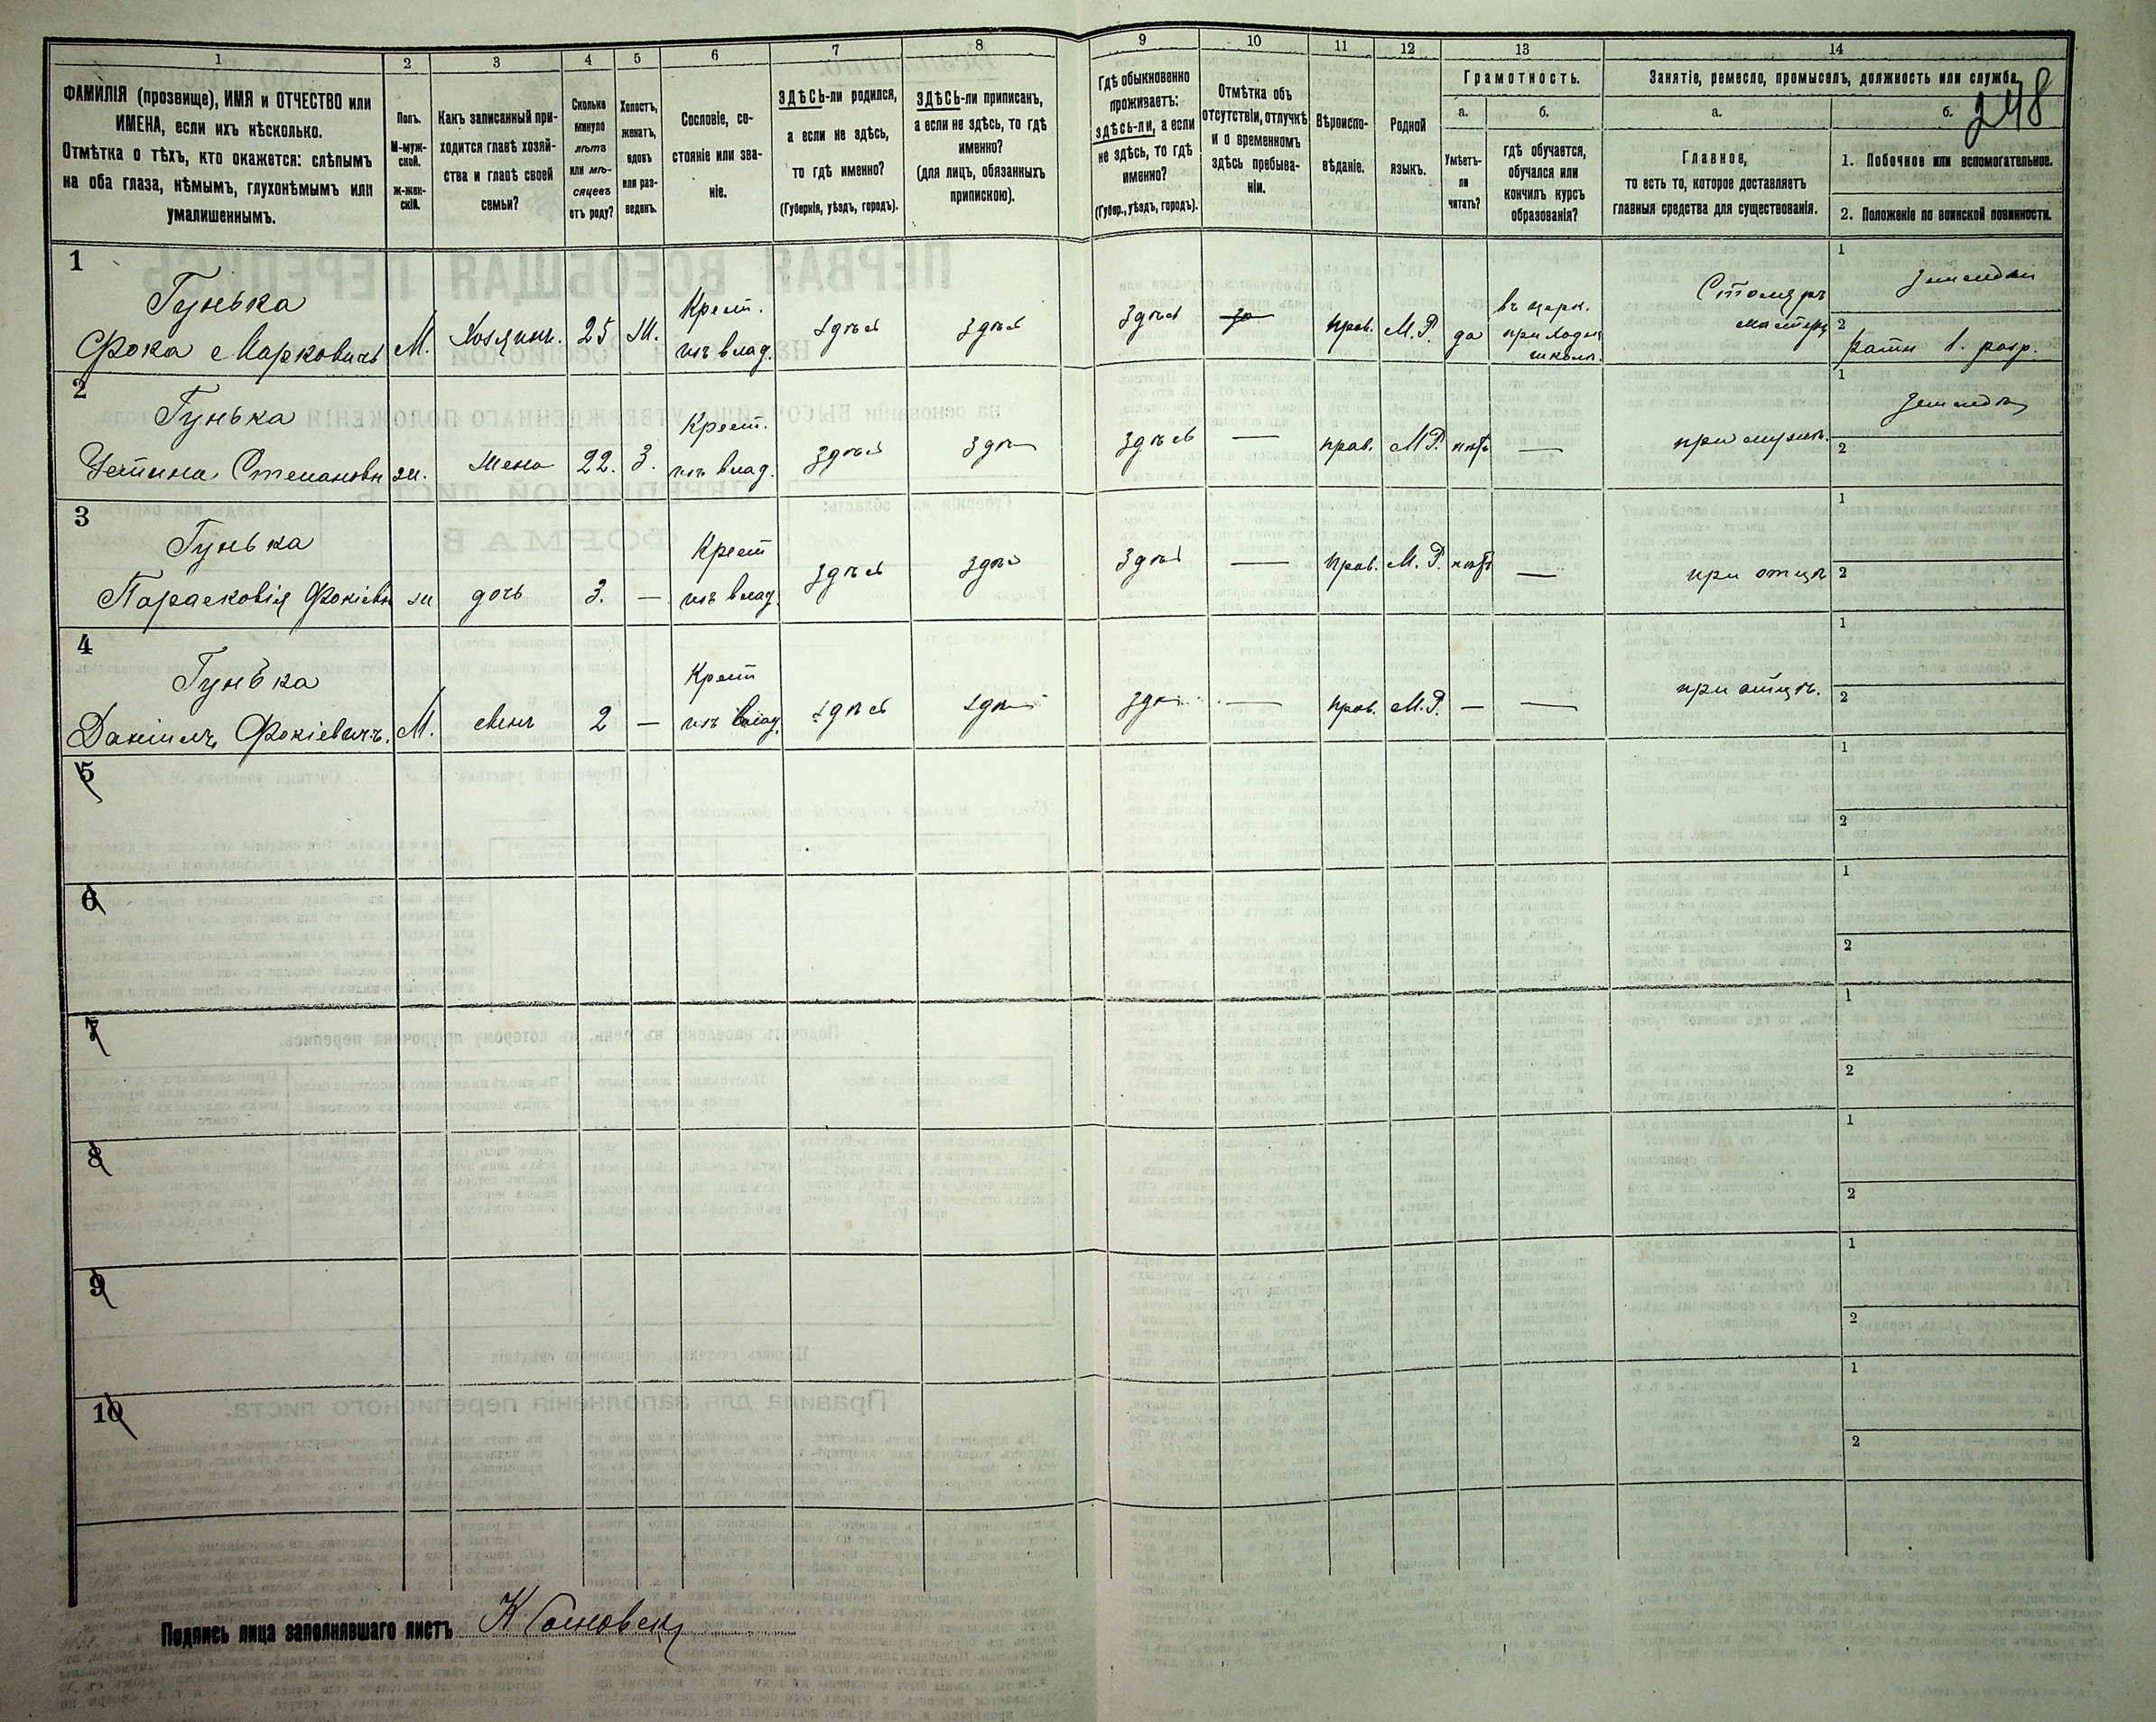 248
1 2 3 4 5 6 7 8 9 10 11 12 13 14
ФАМИЛІЯ (прозвище), ИМЯ и ОТЧЕСТВО или
ИМЕНА, если ихъ нѣсколько.
Отмѣтка о тѣхъ, кто окажется: слѣпымъ
на оба глаза, нѣмымъ, глухонѣмымъ или
умалишеннымъ.
Полъ.
М-муж-
ской.
ж-жен-
скій.
Какъ записанный при-
ходится главѣ хозяй-
ства и главѣ своей
семьи?
Сколько
минуло
лѣтъ
или мѣ-
сяцевъ
отъ роду?
Холостъ,
женатъ,
вдовъ
или раз-
веденъ.
Сословіе, со-
стояніе или зва-
ніе.
ЗДѢСЬ-ли родился,
а если не здѣсь,
то гдѣ именно?
(Губернія, уѣздъ, городъ).
ЗДѢСЬ-ли приписанъ,
а если не здѣсь, то гдѣ
именно?
(для лицъ, обязанныхъ
припискою).
Гдѣ обыкновенно
проживаетъ:
здѣсь-ли, а если
не здѣсь, то гдѣ
именно?
(Губер., уѣздъ, городъ).
Отмѣтка объ
отсутствіи, отлучкѣ
и о временномъ
здѣсь пребыва-
ніи.
Вѣроиспо-
вѣданіе.
Родной
языкъ.
Грамотность.
а. б.
Умѣетъ-
ли
читать?
гдѣ обучается,
обучался или
кончилъ курсъ
образованія?
Занятіе, ремесло, промыселъ, должность или служба.
а. б.
Главное,
то есть то, которое доставляетъ
главныя средства для существованія.
1. Побочное или вспомогательное.
2. Положеніе по воинской повинности.
1
Гунька
Фока Марковичъ
М. Хозяинъ. 25 Ж.
Крест.
изъ влад.
здѣсь здѣсь здѣсь
прав. М.Р. да
въ церк.
приходск.
школѣ.
Столяръ
мастеръ
1
2 ратн 1. разр.
2
Гунька
Устина Степановн
ж. жена 22. З.
Крест.
изъ влад.
здѣсь здѣсь здѣсь — прав. М.Р. нѣтъ — при мужѣ.
1
2
3
Гунька
Парасковія Фокіевн
ж дочь 3. —
Крест
изъ влад.
здѣсь здѣсь здѣсь — прав. М.Р. нѣтъ — при отцѣ
1
2
4
Гунька
Даніилъ Фокіевичъ.
М. сынъ 2 —
Крест
изъ влад.
здѣсь здѣсь здѣсь — прав. М.Р. — — при отцѣ.
1
2
5
1
2
6
1
2
7
1
2
8
1
2
9
1
2
10
1
2
Подпись лица заполнявшаго листъ